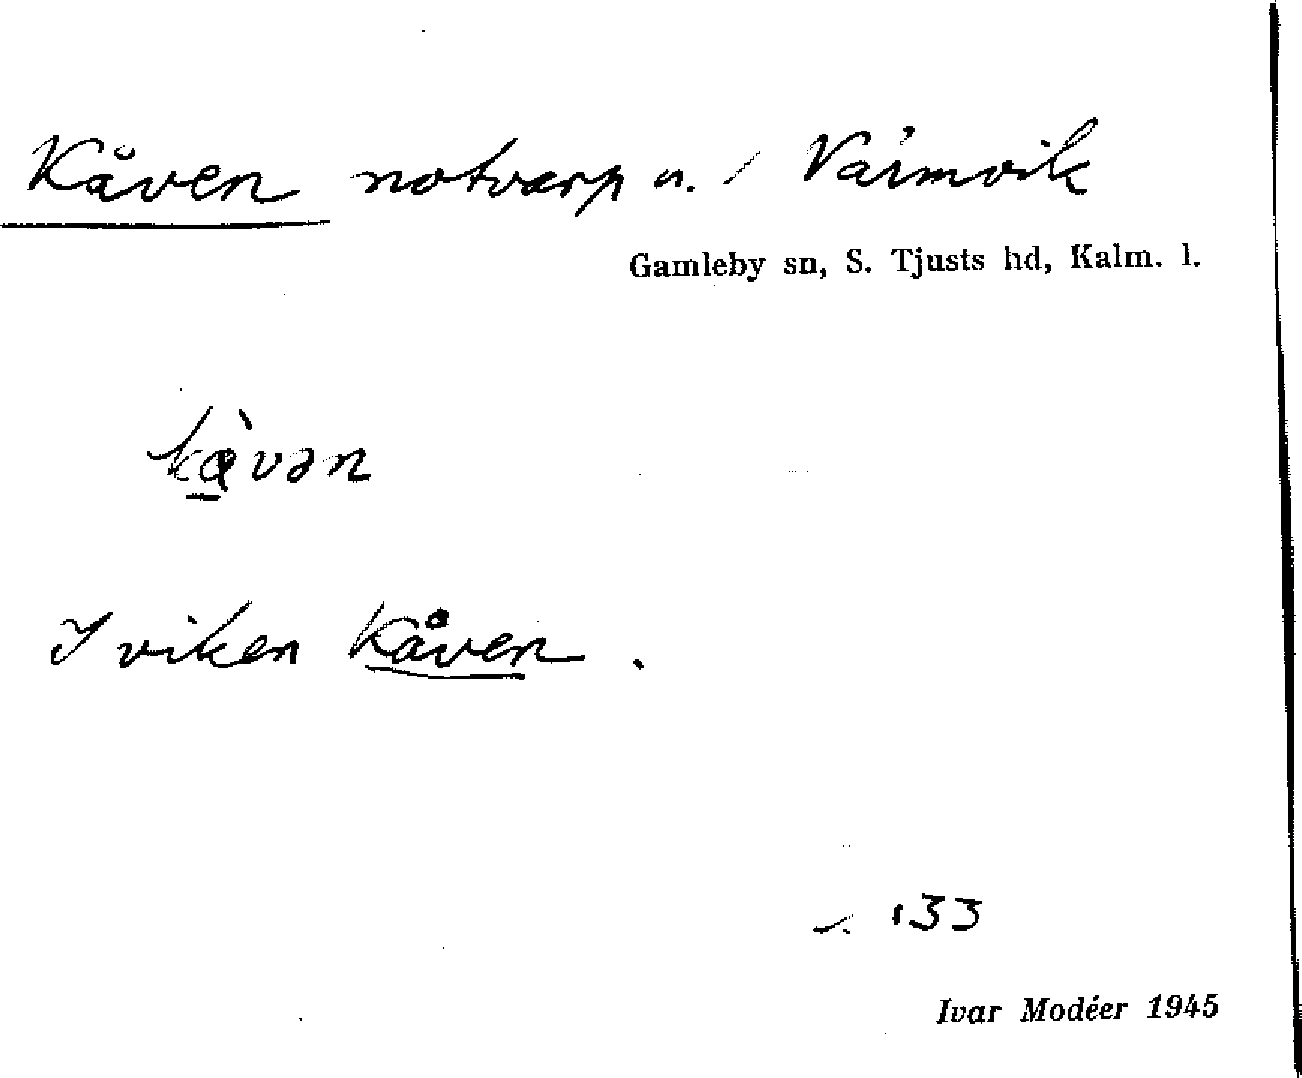 Kåven notvarp u. / Vårmvik
Gamleby sn, S. Tjusts hd, Kalm. l.
kàvən
I viken Kåven.
s. 133
Ivar Modéer 1945